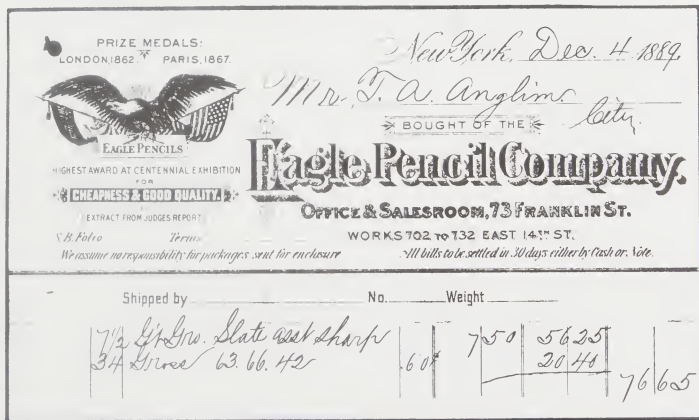 PRIZE MEDALS:
LONDON, 1862. PARIS, 1867.
EAGLE PENCILS
HIGHEST AWARD AT CENTENNIAL EXHIBITION
FOR
CHEAPNESS & GOOD QUALITY.
EXTRACT FROM JUDGES REPORT
S.B. Folio Terms
We assume no responsibility for packages sent for enclosure
New York, Dec. 4 1889.
Mr. T. A. Anglim.
City.
BOUGHT OF THE
Eagle Pencil Company.
OFFICE & SALESROOM, 73 FRANKLIN ST.
WORKS 702 TO 732 EAST 14TH ST.
All bills to be settled in 30 days either by Cash or Note.
Shipped by No. Weight
7 1/2 Gt Gro. Slate asst sharp 7 50 56 25
34 Gross 63.66.42 .60¢ 20 40
76 65